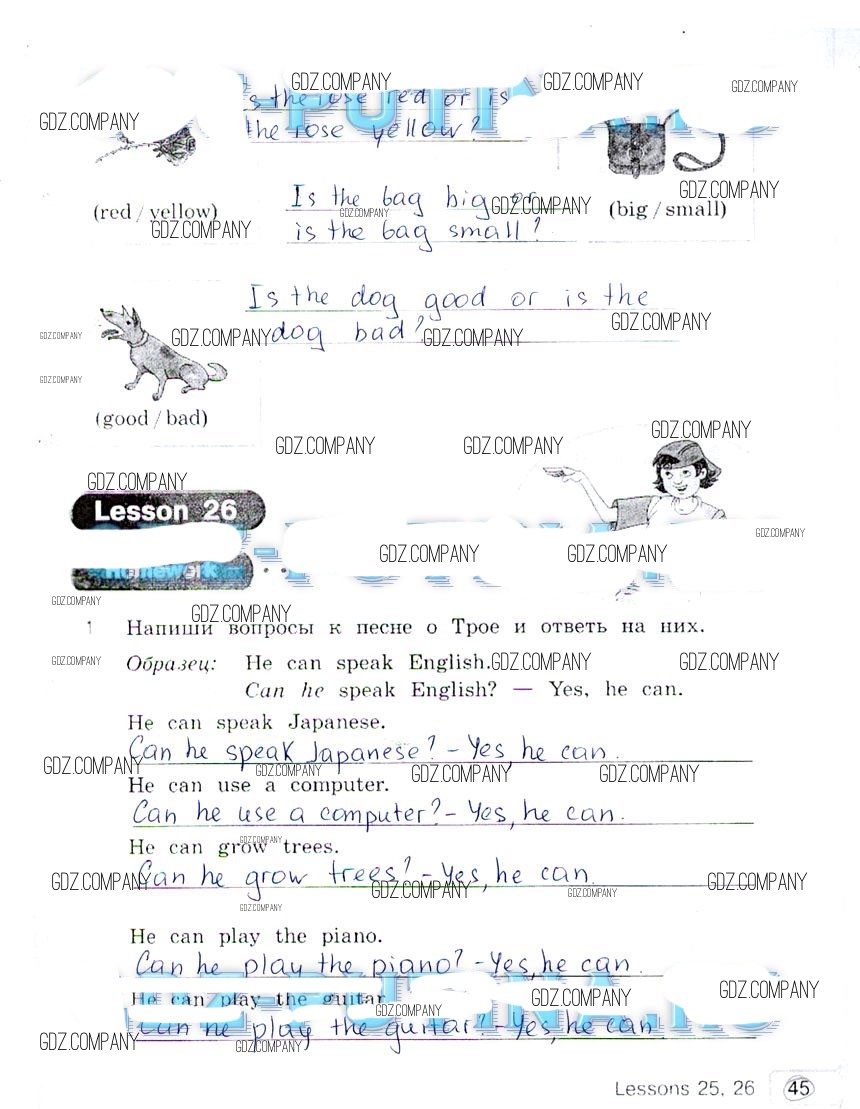 GDZ.COMPANY GDZ.COMPANY GDZ.COMPANY
s the rose red or is
GDZ.COMPANY
the rose yellow?
GDZ.COMPANY
Is the bag big or
(red / yellow) GDZ.COMPANY GDZ.COMPANY (big / small)
GDZ.COMPANY is the bag small?
Is the dog good or is the
GDZ.COMPANY
GDZ.COMPANY GDZ.COMPANY dog bad? GDZ.COMPANY
GDZ.COMPANY
(good / bad)
GDZ.COMPANY GDZ.COMPANY GDZ.COMPANY
GDZ.COMPANY
Lesson 26
GDZ.COMPANY
GDZ.COMPANY GDZ.COMPANY
Homework
GDZ.COMPANY GDZ.COMPANY
1 Напиши вопросы к песне о Трое и ответь на них.
GDZ.COMPANY Образец: He can speak English. GDZ.COMPANY GDZ.COMPANY
Can he speak English? — Yes, he can.
He can speak Japanese.
Can he speak Japanese? - Yes, he can.
GDZ.COMPANY GDZ.COMPANY GDZ.COMPANY GDZ.COMPANY
He can use a computer.
Can he use a computer? - Yes, he can.
GDZ.COMPANY
He can grow trees.
Can he grow trees? - Yes, he can.
GDZ.COMPANY GDZ.COMPANY GDZ.COMPANY GDZ.COMPANY
GDZ.COMPANY
He can play the piano.
Can he play the piano? - Yes, he can.
GDZ.COMPANY GDZ.COMPANY
He can play the guitar
GDZ.COMPANY
Can he play the guitar? - Yes, he can
GDZ.COMPANY GDZ.COMPANY
Lessons 25, 26 45